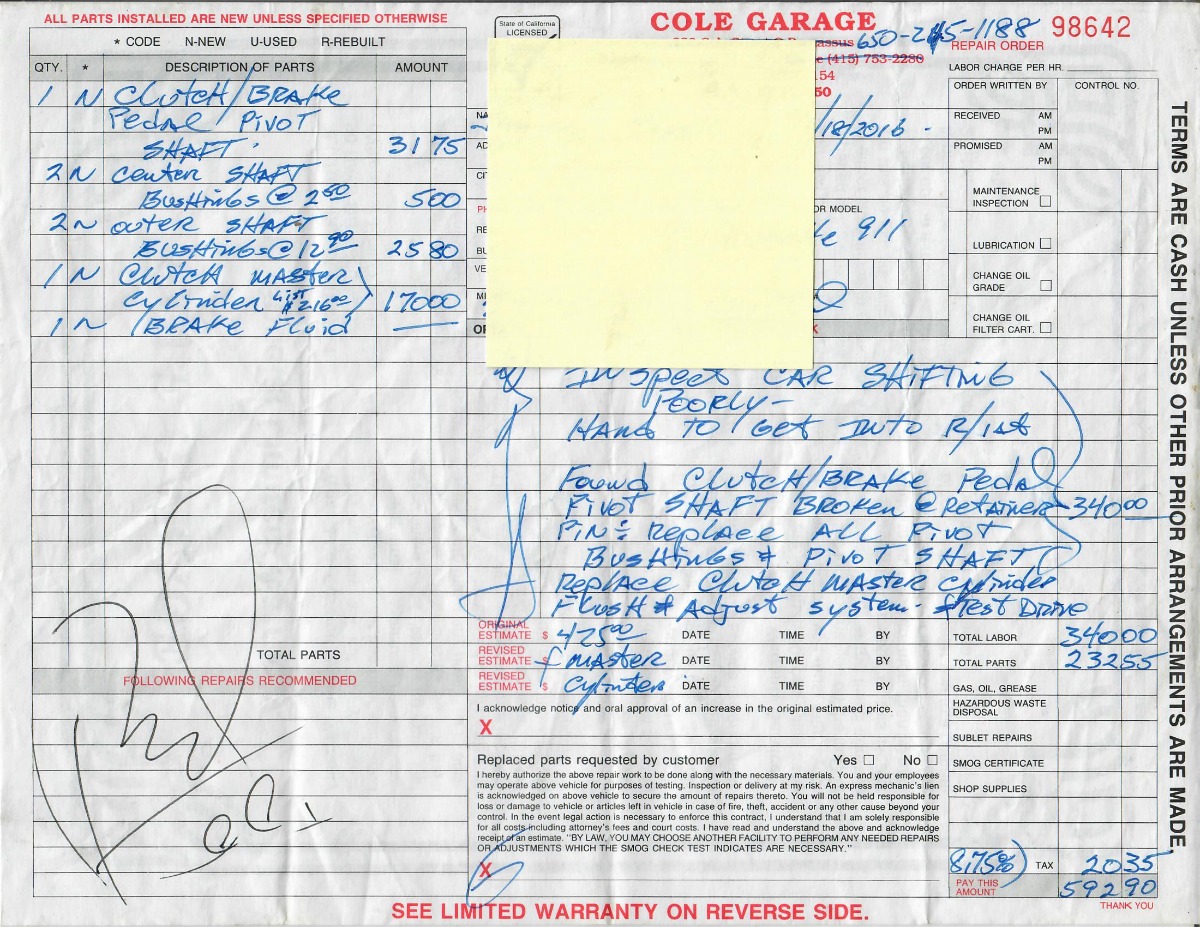 ALL PARTS INSTALLED ARE NEW UNLESS SPECIFIED OTHERWISE
* CODE N-NEW U-USED R-REBUILT
QTY. * DESCRIPTION OF PARTS AMOUNT
1 N Clutch/BRAKE
Pedal Pivot
SHAFT. 31 75
2 N center SHAFT
BusHings @ 2 50 5 00
2 N outer SHAFT
BUSHings @ 12 90 25 80
1 N Clutch MASTER
Cylinder List $216 00 170 00
1 N BRAKE Fluid —
TOTAL PARTS
FOLLOWING REPAIRS RECOMMENDED
PD
State of California
LICENSED
COLE GARAGE
98642
650-245-1188
(415) 753-2280
154
50
REPAIR ORDER
LABOR CHARGE PER HR.
ORDER WRITTEN BY CONTROL NO.
/18/2016 -
RECEIVED AM
PM
PROMISED AM
PM
NA
AD
CIT
PH
RE
BU
VE
MI
OR
OR MODEL
911
MAINTENANCE
INSPECTION
LUBRICATION
CHANGE OIL
GRADE
CHANGE OIL
FILTER CART.
INSpect CAR SHiFTiNG
POORLY-
HARD TO GET INTO R/1st
Found Clutch/BRAKE Pedal
Pivot SHAFT Broken @ Retainer 340 00
Pin: Replace ALL Pivot
BusHings & Pivot SHAFT
Replace Clutch MASTER Cylinder
FlusH & Adjust system. & Test Drive
ORIGINAL
ESTIMATE $ 425 00 DATE TIME BY
REVISED
ESTIMATE $ MASTER DATE TIME BY
REVISED
ESTIMATE $ Cylinder DATE TIME BY
I acknowledge notice and oral approval of an increase in the original estimated price.
X
Replaced parts requested by customer Yes No
I hereby authorize the above repair work to be done along with the necessary materials. You and your employees
may operate above vehicle for purposes of testing. Inspection or delivery at my risk. An express mechanic's lien
is acknowledged on above vehicle to secure the amount of repairs thereto. You will not be held responsible for
loss or damage to vehicle or articles left in vehicle in case of fire, theft, accident or any other cause beyond your
control. In the event legal action is necessary to enforce this contract, I understand that I am solely responsible
for all costs including attorney's fees and court costs. I have read and understand the above and acknowledge
receipt of an estimate. "BY LAW, YOU MAY CHOOSE ANOTHER FACILITY TO PERFORM ANY NEEDED REPAIRS
OR ADJUSTMENTS WHICH THE SMOG CHECK TEST INDICATES ARE NECESSARY."
X
TOTAL LABOR 340 00
TOTAL PARTS 232 55
GAS, OIL, GREASE
HAZARDOUS WASTE
DISPOSAL
SUBLET REPAIRS
SMOG CERTIFICATE
SHOP SUPPLIES
8.75% TAX 20 35
PAY THIS
AMOUNT 592 90
THANK YOU
SEE LIMITED WARRANTY ON REVERSE SIDE.
TERMS ARE CASH UNLESS OTHER PRIOR ARRANGEMENTS ARE MADE